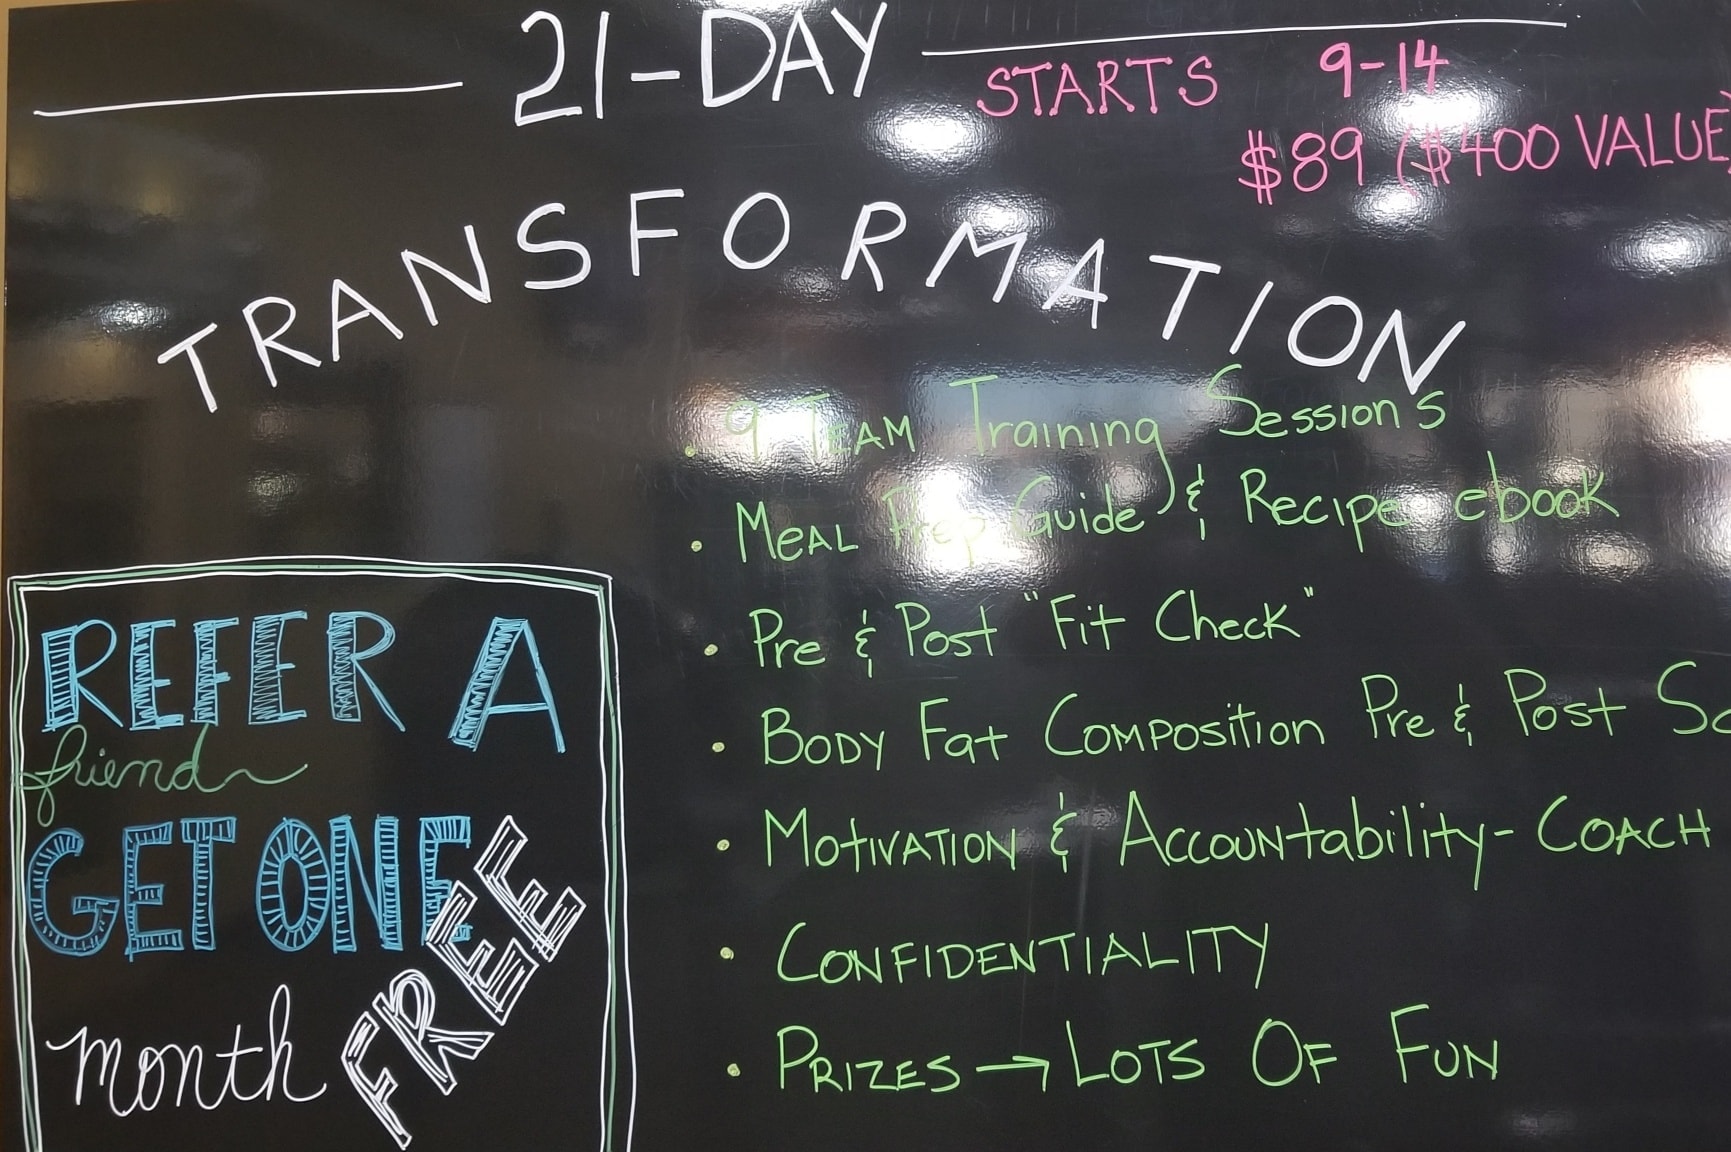 21-DAY
STARTS 9-14
$89 ($400 VALUE)
TRANSFORMATION
• 9 TEAM Training Sessions
• MEAL Prep Guide & Recipe ebook
• Pre & Post "Fit Check"
• BODY Fat Composition Pre & Post
• Motivation & Accountability-COACH
• CONFIDENTIALITY
• PRIZES → LOTS OF FUN
REFER A
friend
GET ONE
month FREE